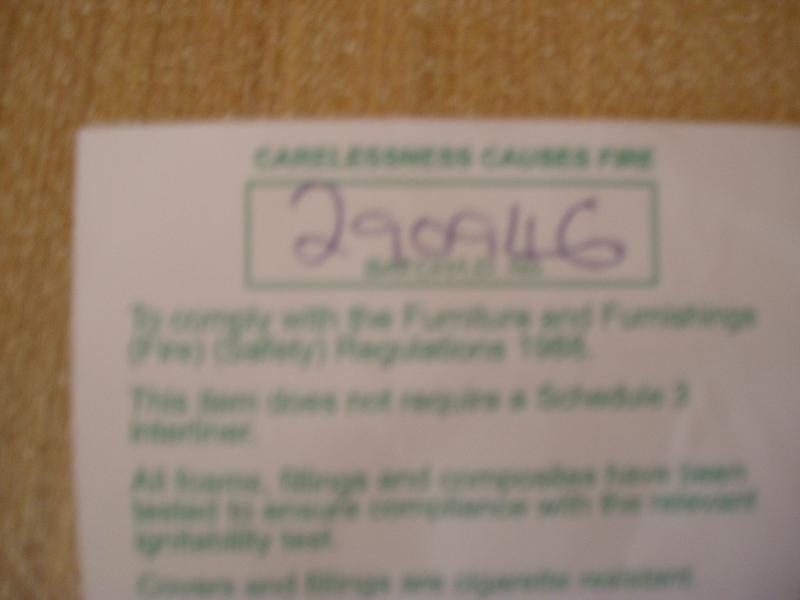 CARELESSNESS CAUSES FIRE
290946
To comply with the Furniture and Furnishings
(Fire) (Safety) Regulations 1988.
This item does not require a Schedule 3
Interliner.
All foams, fillings and composites have been
tested to ensure compliance with the relevant
ignitability test.
Covers and fillings are cigarette resistant.